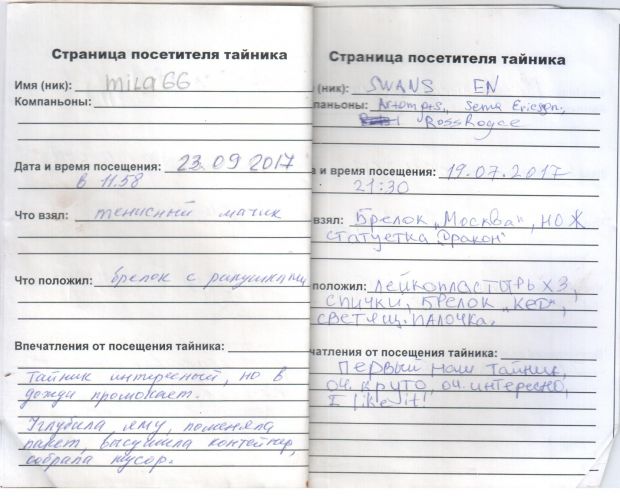 Страница посетителя тайника
Имя (ник): mila66
Компаньоны:
Дата и время посещения: 23.09 2017
в 11.58
Что взял: тенисный мячик
Что положил: брелок с ракушками
Впечатления от посещения тайника:
Тайник интересный, но в
дожди промокает.
Углубила яму, поменяла
пакет, высушила контейнер,
собрала мусор.
Страница посетителя тайника
(ник): SWANS EN
паньоны: Artomps, Sema Ericson,
RossRoyce
а и время посещения: 19.07.2017
21:30
взял: Брелок „Москва", нож
статуетка „Дракон"
положил: Лейкопластырь х 3,
спички, брелок „Кед",
светящ. палочка.
чатления от посещения тайника:
Первый наш тайник,
оч. круто, оч. интересно,
I like it!